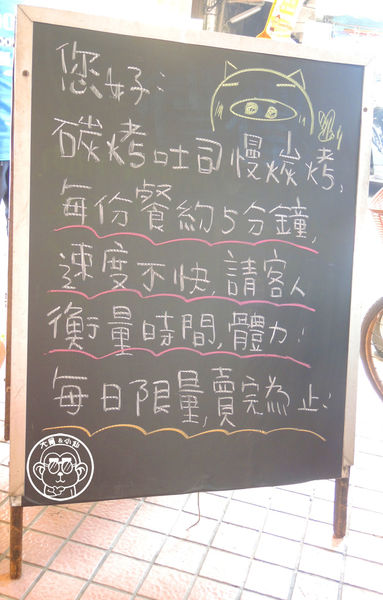 您好:
碳烤吐司慢炭烤,
每份餐約5分鐘,
速度不快,請客人
衡量時間,體力!
每日限量,賣完為止!